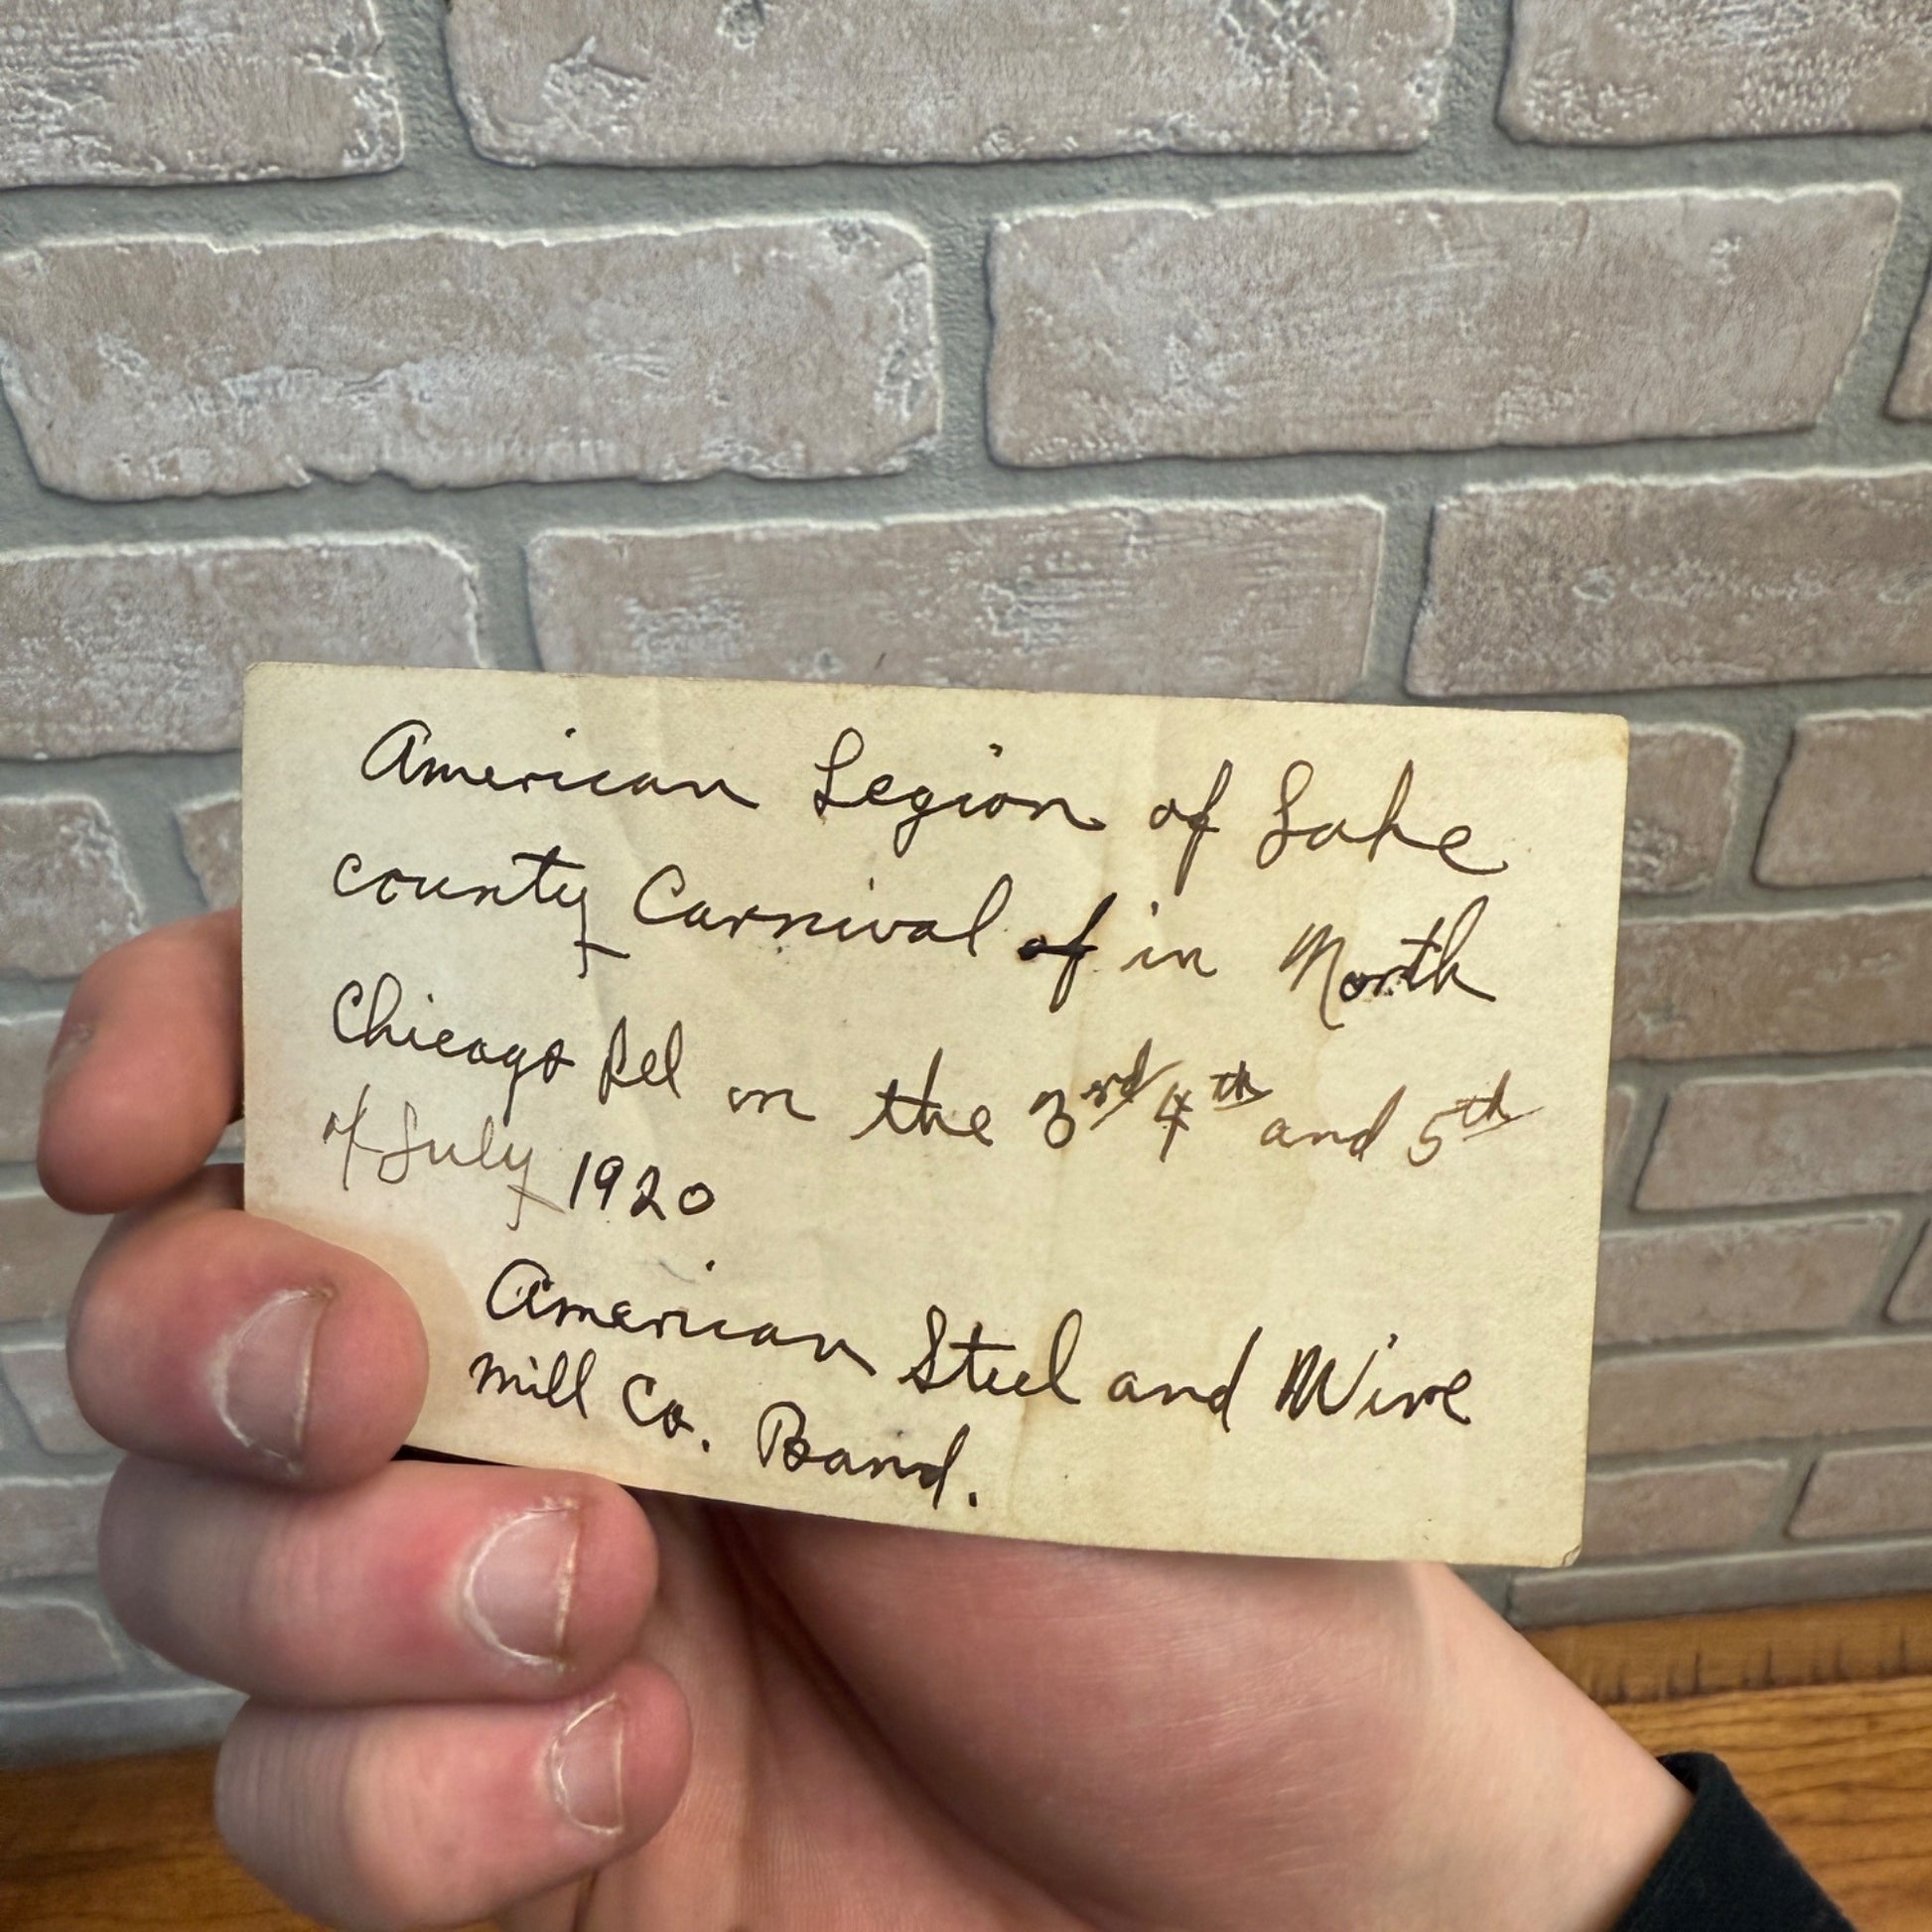 American Legion of Lake
county Carnival of in North
Chicago Ill on the 3rd 4th and 5th
of July 1920
American Steel and Wire
Mill Co. Band.